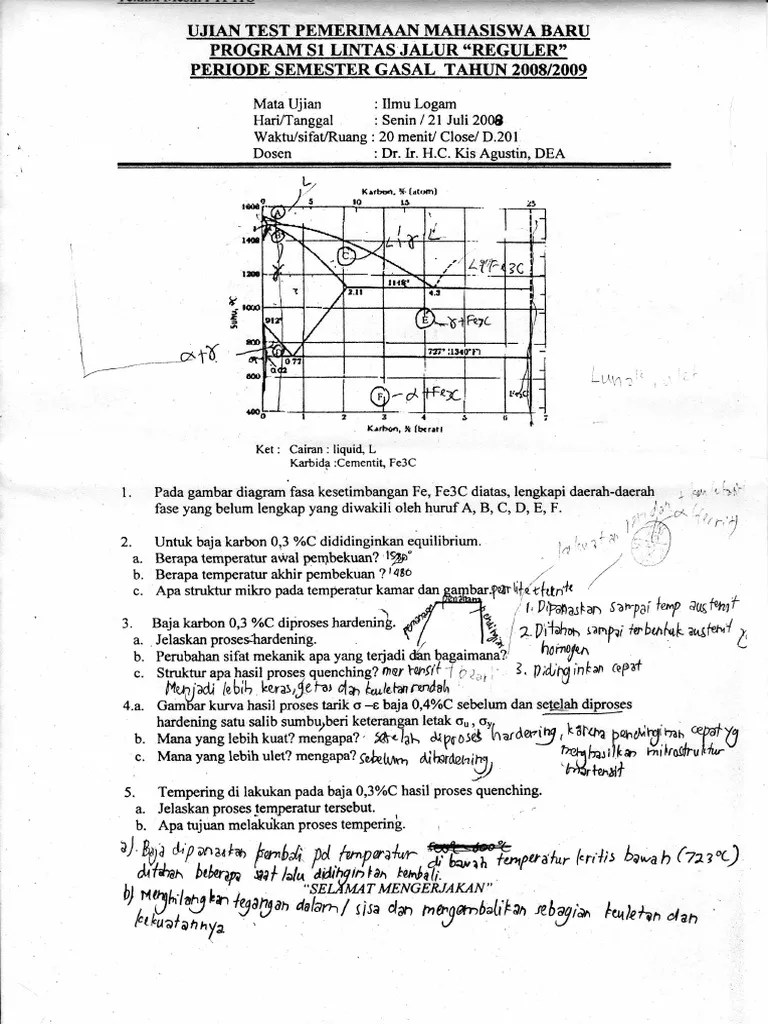 UJIAN TEST PEMERIMAAN MAHASISWA BARU
PROGRAM S1 LINTAS JALUR "REGULER"
PERIODE SEMESTER GASAL TAHUN 2008/2009
Mata Ujian : Ilmu Logam
Hari/Tanggal : Senin / 21 Juli 2008
Waktu/sifat/Ruang : 20 menit/ Close/ D.201
Dosen : Dr. Ir. H.C. Kis Agustin, DEA
L
Karbon, % (atom)
0 5 10 15 25
1600 A
1400 B γ C L+γ L
1200 1148° L+Fe3C
2.11 4.3
Suhu, °C
1000 E γ+Fe3C
912°
α+γ
800 D 0.77 727° (1340°F)
0.02
600 F α+Fe3C Fe3C
400
0 1 2 3 4 5 6 7
Karbon, % (berat)
Ket : Cairan : liquid, L
Karbida :Cementit, Fe3C
1. Pada gambar diagram fasa kesetimbangan Fe, Fe3C diatas, lengkapi daerah-daerah
fase yang belum lengkap yang diwakili oleh huruf A, B, C, D, E, F.
2. Untuk baja karbon 0,3 %C dididinginkan equilibrium.
a. Berapa temperatur awal pembekuan?
b. Berapa temperatur akhir pembekuan ? 1480
c. Apa struktur mikro pada temperatur kamar dan gambar.
pemanasan penahanan pendinginan
3. Baja karbon 0,3 %C diproses hardening.
a. Jelaskan proses hardening.
b. Perubahan sifat mekanik apa yang terjadi dan bagaimana?
c. Struktur apa hasil proses quenching? martensit
Menjadi lebih keras, getas dan keuletan rendah
1. Dipanaskan sampai temp austenit
2. Ditahan sampai terbentuk austenit
homogen
3. Didinginkan cepat
4.a. Gambar kurva hasil proses tarik σ –ε baja 0,4%C sebelum dan setelah diproses
hardening satu salib sumbu,beri keterangan letak σu , σy,
b. Mana yang lebih kuat? mengapa? setelah diproses hardening, karena pendinginan cepat yg
menghasilkan mikrostruktur
martensit
c. Mana yang lebih ulet? mengapa? sebelum dihardening,
5. Tempering di lakukan pada baja 0,3%C hasil proses quenching.
a. Jelaskan proses temperatur tersebut.
b. Apa tujuan melakukan proses tempering.
a). Baja dipanaskan kembali pd temperatur di bawah temperatur kritis bawah (723°C)
ditahan beberapa saat lalu didinginkan kembali.
"SELAMAT MENGERJAKAN"
b) Menghilangkan tegangan dalam / sisa dan mengembalikan sebagian keuletan dan
kekuatannya